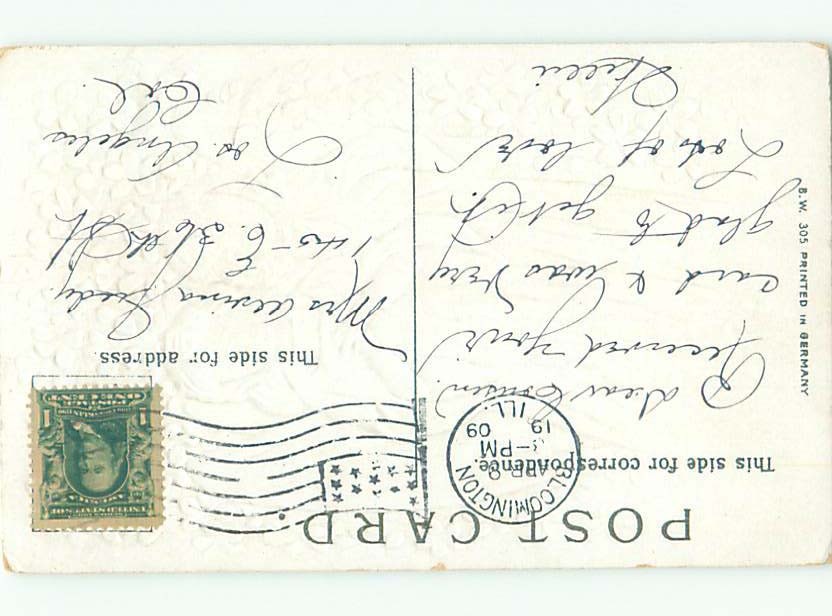 POST CARD.
This side for correspondence.
This side for address.
BLOOMINGTON
APR 8
-PM
19 09
ILL.
UNITED STATES OF
AMERICA
1 1
ONE CENT
Dear Cousin.
Received your
card & was very
glad to get it.
Lots of love
Mrs
140 - E. 36th St
Los Angeles
Cal.
B.W. 305 PRINTED IN GERMANY